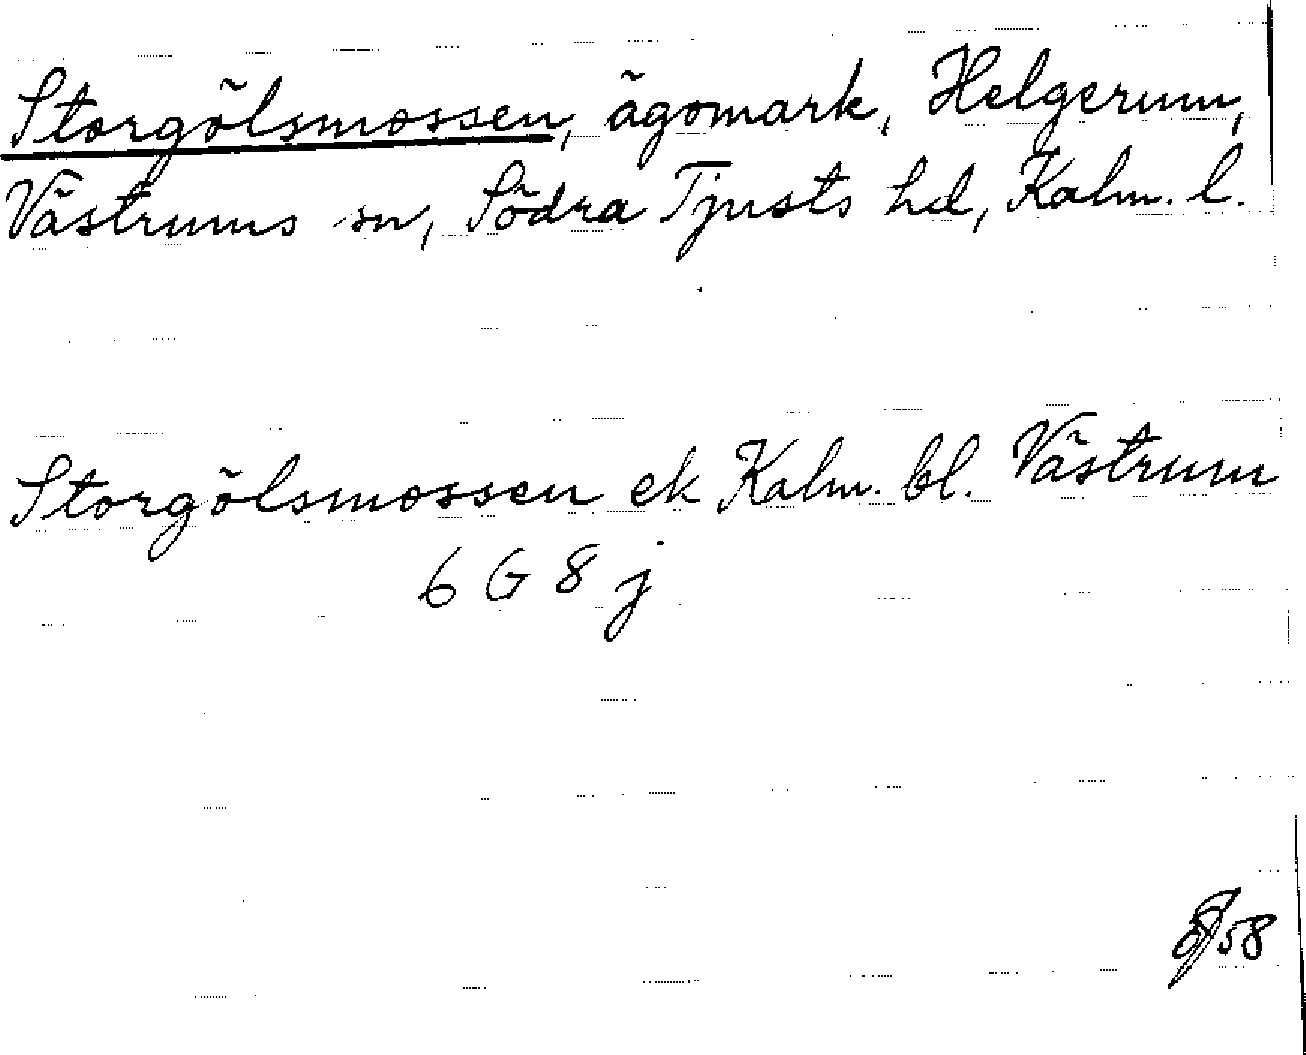 Storgölsmossen, ägomark, Helgerum,
Västrums sn, Södra Tjusts hd, Kalm. l.
Storgölsmossen ek Kalm. bl. Västrum
6 G 8 j
58